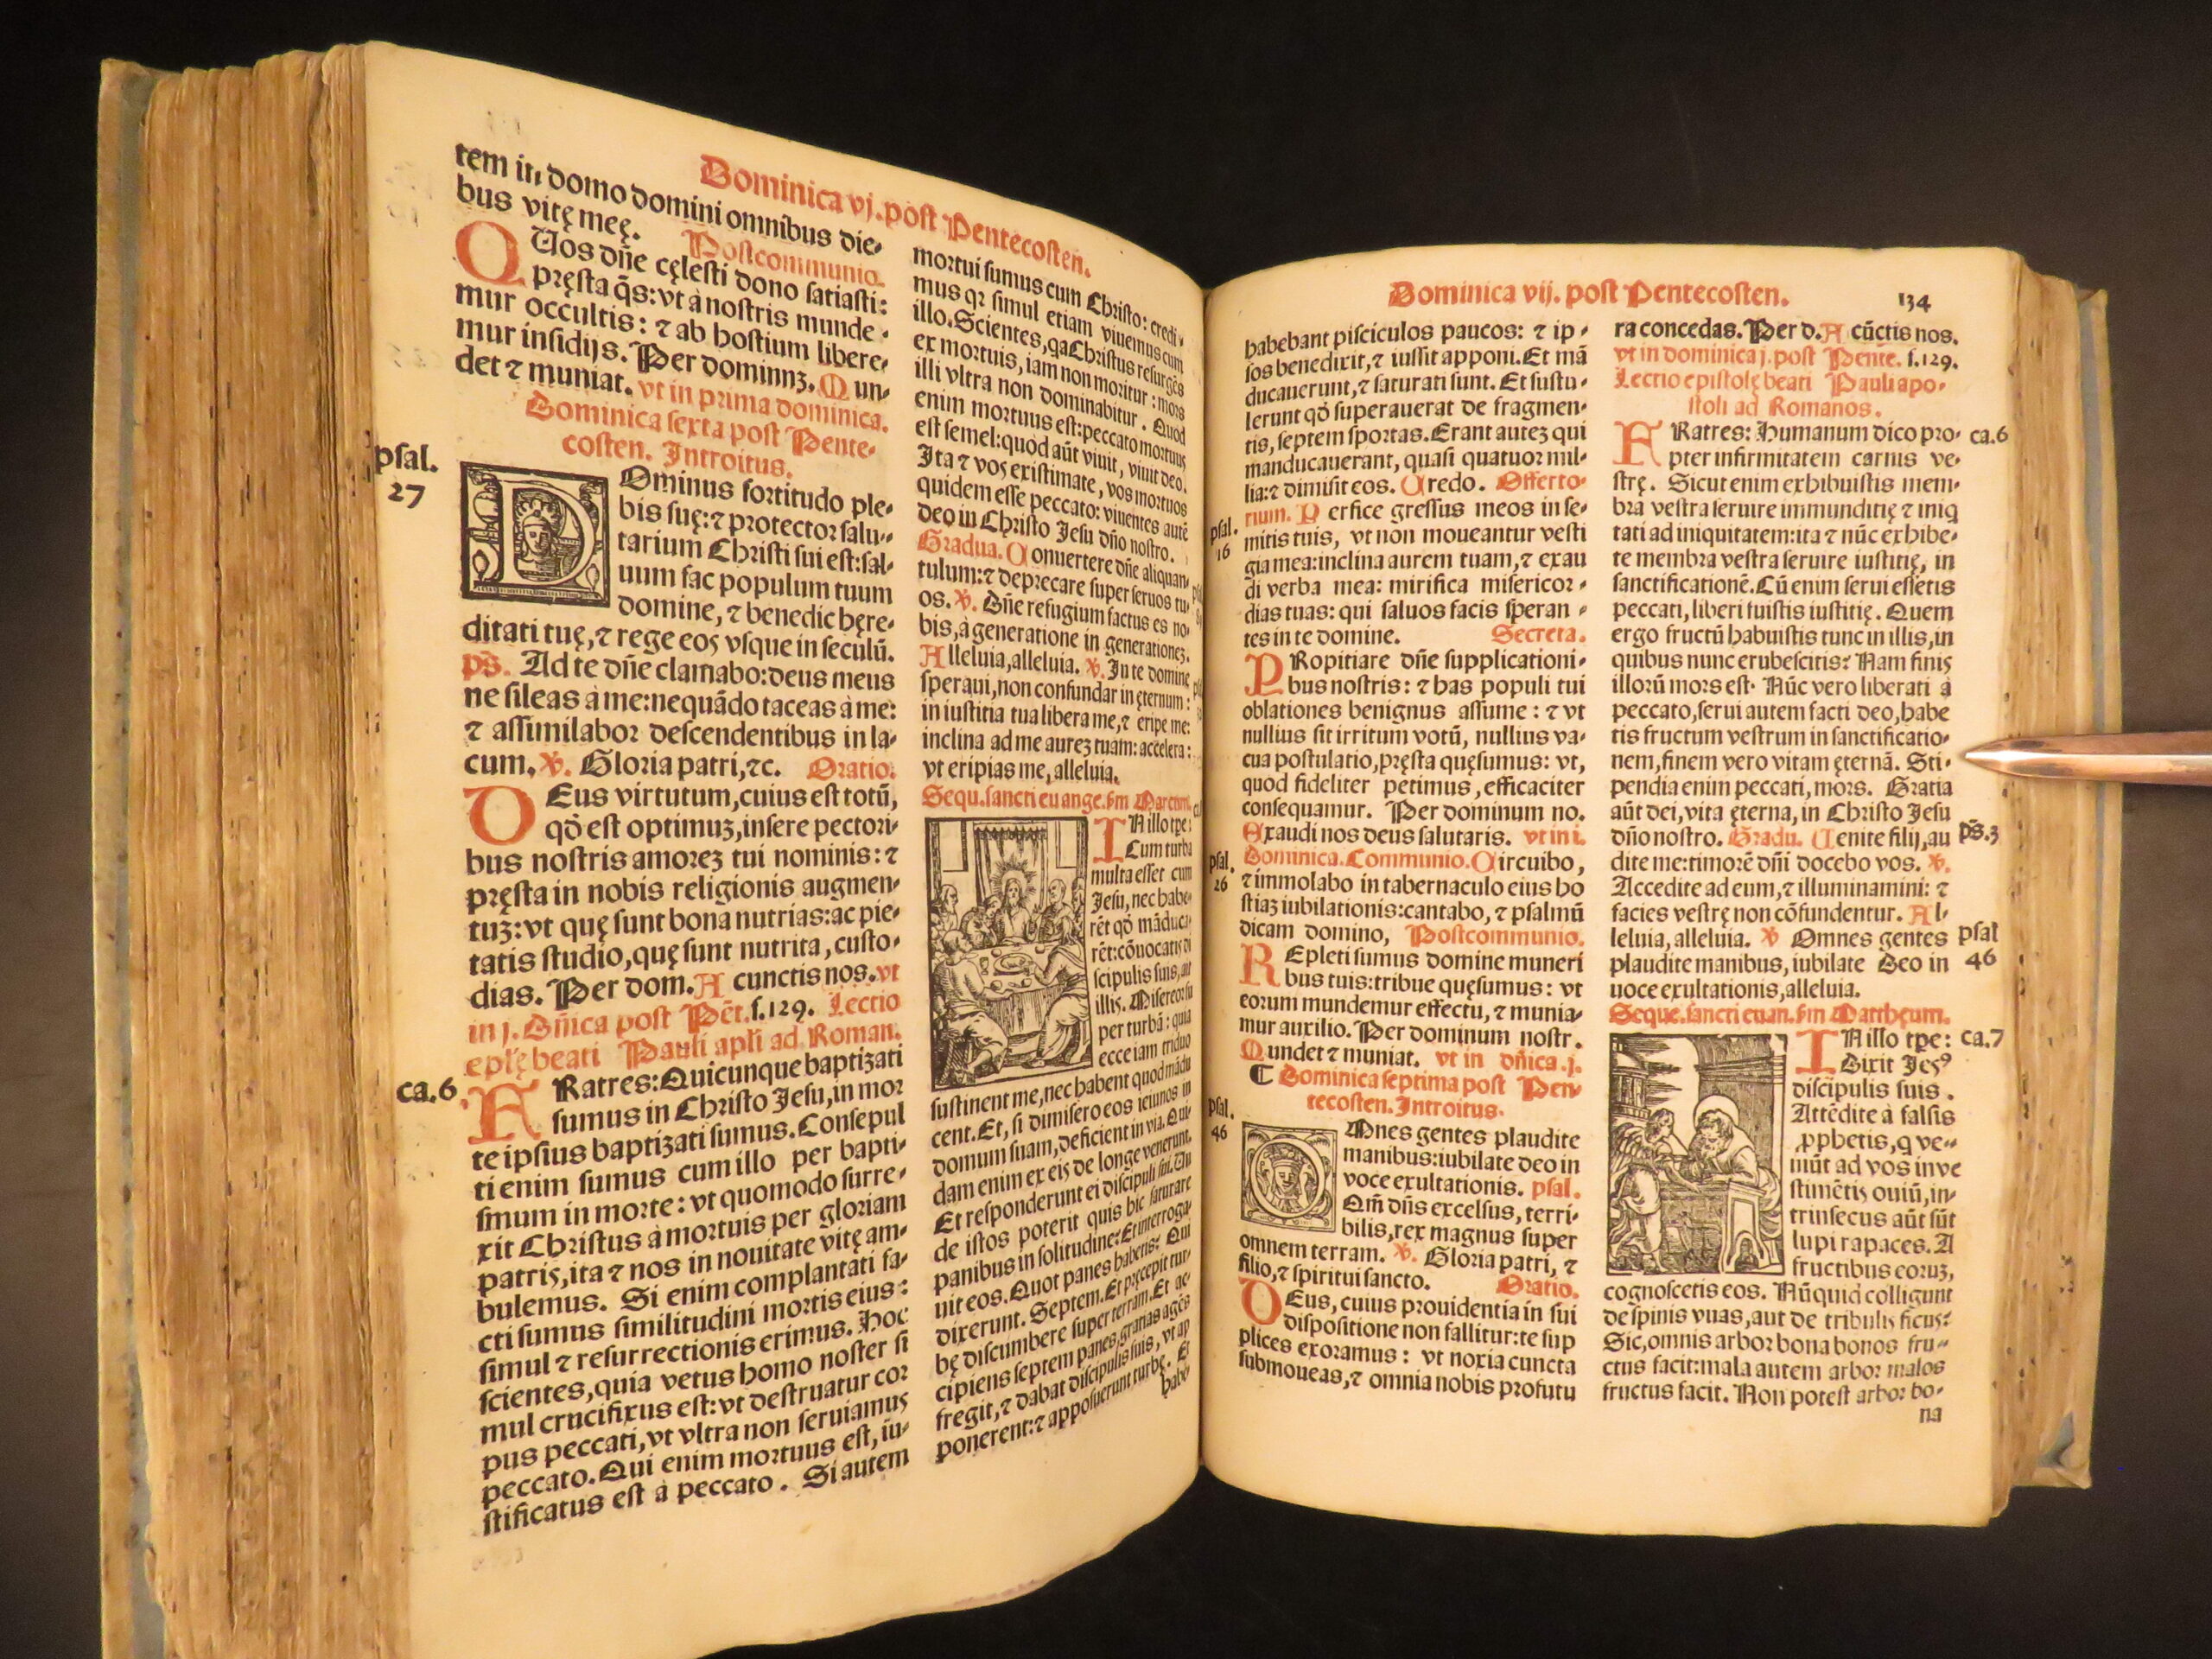 Dominica vj. post Pentecosten.
tem in domo domini omnibus die⸗
bus vitę meę. Postcommunio.
QUos dñe cęlesti dono satiasti:
pręsta q̃s: vt à nostris munde⸗
mur occultis: ⁊ ab hostium libere⸗
mur insidijs. Per dominuꝫ. Mun⸗
det ⁊ muniat. vt in prima dominica.
Dominica sexta post Pente⸗
costen. Introitus.
psal.
27
DOminus fortitudo ple⸗
bis suę: ⁊ protector salu⸗
tarium Christi sui est: sal⸗
uum fac populum tuum
domine, ⁊ benedic hęre⸗
ditati tuę, ⁊ rege eos vsque in seculũ.
ps̃. Ad te dñe clamabo: deus meus
ne sileas à me: nequãdo taceas à me:
⁊ assimilabor descendentibus in la⸗
cum. ℣. Gloria patri, ⁊c. Oratio.
DEus virtutum, cuius est totũ,
qđ est optimuꝫ, insere pectori⸗
bus nostris amoreꝫ tui nominis: ⁊
pręsta in nobis religionis augmen⸗
tuꝫ: vt quę sunt bona nutrias: ac pie⸗
tatis studio, quę sunt nutrita, custo⸗
dias. Per dom. A cunctis nos. vt
in j. Dñica post Pẽt. f.129. Lectio
eplę beati Pauli apli ad Roman.
ca.6.
FRatres: Quicunque baptizati
sumus in Christo Jesu, in mor
te ipsius baptizati sumus. Consepul
ti enim sumus cum illo per bapti⸗
smum in morte: vt quomodo surre⸗
xit Christus à mortuis per gloriam
patris, ita ⁊ nos in nouitate vitę am⸗
bulemus. Si enim complantati fa⸗
cti sumus similitudini mortis eius:
simul ⁊ resurrectionis erimus. Hoc
scientes, quia vetus homo noster si
mul crucifixus est: vt destruatur cor
pus peccati, vt vltra non seruiamus
peccato. Qui enim mortuus est, iu⸗
stificatus est à peccato. Si autem
mortui sumus cum Christo: credi⸗
mus qꝛ simul etiam viuemus cum
illo. Scientes, qa Christus resurgẽs
ex mortuis, iam non moritur: mors
illi vltra non dominabitur. Quod
enim mortuus est: peccato mortuus
est semel: quod aũt viuit, viuit deo.
Ita ⁊ vos existimate, vos mortuos
quidem esse peccato: viuentes autẽ
deo in Christo Jesu dño nostro.
Gradua. Conuertere dñe aliquan⸗
tulum: ⁊ deprecare super seruos tu⸗
os. ℣. Dñe refugium factus es no⸗
bis, à generatione in generationeꝫ.
Alleluia, alleluia. ℣. In te domine
speraui, non confundar in ęternum:
in iustitia tua libera me, ⁊ eripe me:
inclina ad me aureꝫ tuam: accelera:
vt eripias me, alleluia.
Sequ. sancti euange. sm Marcum.
IN illo tꝑe:
Cum turba
multa esset cum
Jesu, nec habe⸗
rẽt qđ mãduca⸗
rẽt: cõuocatis di
scipulis suis, ait
illis. Misereor su
per turbã: quia
ecce iam triduo
sustinent me, nec habent quod mãdu
cent. Et, si dimisero eos ieiunos in
domum suam, deficient in via. Qui⸗
dam enim ex eis de longe venerunt.
Et responderunt ei discipuli sui. Un
de istos poterit quis hic saturare
panibus in solitudine? Et interroga⸗
uit eos. Quot panes habetis? Qui
dixerunt. Septem. Et pręcepit tur⸗
bę discumbere super terram. Et ac⸗
cipiens septem panes, gratias agẽs
fregit, ⁊ dabat discipulis suis, vt ap
ponerent: ⁊ apposuerunt turbę. Et
habe⸗
Dominica vij. post Pentecosten.
134
habebant pisciculos paucos: ⁊ ip⸗
sos benedixit, ⁊ iussit apponi. Et mã
ducauerunt, ⁊ saturati sunt. Et sustu⸗
lerunt qđ superauerat de fragmen⸗
tis, septem sportas. Erant auteꝫ qui
manducauerant, quasi quatuor mil⸗
lia: ⁊ dimisit eos. Credo. Offerto⸗
rium. Perfice gressus meos in se⸗
psal.
16
mitis tuis, vt non moueantur vesti
gia mea: inclina aurem tuam, ⁊ exau
di verba mea: mirifica misericor⸗
dias tuas: qui saluos facis speran⸗
tes in te domine. Secreta.
PRopitiare dñe supplicationi⸗
bus nostris: ⁊ has populi tui
oblationes benignus assume: ⁊ vt
nullius sit irritum votũ, nullius va⸗
cua postulatio, pręsta quęsumus: vt,
quod fideliter petimus, efficaciter
consequamur. Per dominum no.
Exaudi nos deus salutaris. vt in i.
Dominica. Communio. Circuibo,
psal.
26
⁊ immolabo in tabernaculo eius ho
stiaꝫ iubilationis: cantabo, ⁊ psalmũ
dicam domino, Postcommunio.
REpleti sumus domine muneri
bus tuis: tribue quęsumus: vt
eorum mundemur effectu, ⁊ munia⸗
mur auxilio. Per dominum nostr.
Mundet ⁊ muniat. vt in dñica. j.
¶ Dominica septima post Pen⸗
tecosten. Introitus.
psal.
46
OMnes gentes plaudite
manibus: iubilate deo in
voce exultationis. psal.
Qm̃ dñs excelsus, terri⸗
bilis, rex magnus super
omnem terram. ℣. Gloria patri, ⁊
filio, ⁊ spiritui sancto. Oratio.
DEus, cuius prouidentia in sui
dispositione non fallitur: te sup
plices exoramus: vt noxia cuncta
submoueas, ⁊ omnia nobis profutu
ra concedas. Per d. A cũctis nos.
vt in dominica j. post Pente. f.129.
Lectio epistolę beati Pauli apo⸗
stoli ad Romanos.
FRatres: Humanum dico pro⸗
ca.6
pter infirmitatem carnis ve⸗
strę. Sicut enim exhibuistis mem⸗
bra vestra seruire immunditię ⁊ iniq
tati ad iniquitatem: ita ⁊ nũc exhibe⸗
te membra vestra seruire iustitię, in
sanctificationẽ. Cũ enim serui essetis
peccati, liberi fuistis iustitię. Quem
ergo fructũ habuistis tunc in illis, in
quibus nunc erubescitis? Nam finis
illorũ mors est. Nũc vero liberati à
peccato, serui autem facti deo, habe
tis fructum vestrum in sanctificatio⸗
nem, finem vero vitam ęternã. Sti⸗
pendia enim peccati, mors. Gratia
aũt dei, vita ęterna, in Christo Jesu
dño nostro. Gradu. Uenite filij, au
ps̃.3
dite me: timorẽ dñi docebo vos. ℣.
Accedite ad eum, ⁊ illuminamini: ⁊
facies vestrę non cõfundentur. Al⸗
leluia, alleluia. ℣ Omnes gentes
psal
46
plaudite manibus, iubilate Deo in
uoce exultationis, alleluia.
Seque. sancti euan. sm Matthęum.
IN illo tꝑe:
ca.7
Dixit Jesꝰ
discipulis suis.
Attẽdite à falsis
ꝓphetis, q ve⸗
niũt ad vos in ve
stimẽtis ouiũ, in⸗
trinsecus aũt sũt
lupi rapaces. A
fructibus eoruꝫ,
cognoscetis eos. Nũquid colligunt
de spinis vuas, aut de tribulis ficus?
Sic, omnis arbor bona bonos fru⸗
ctus facit: mala autem arbor malos
fructus facit. Non potest arbor bo⸗
na